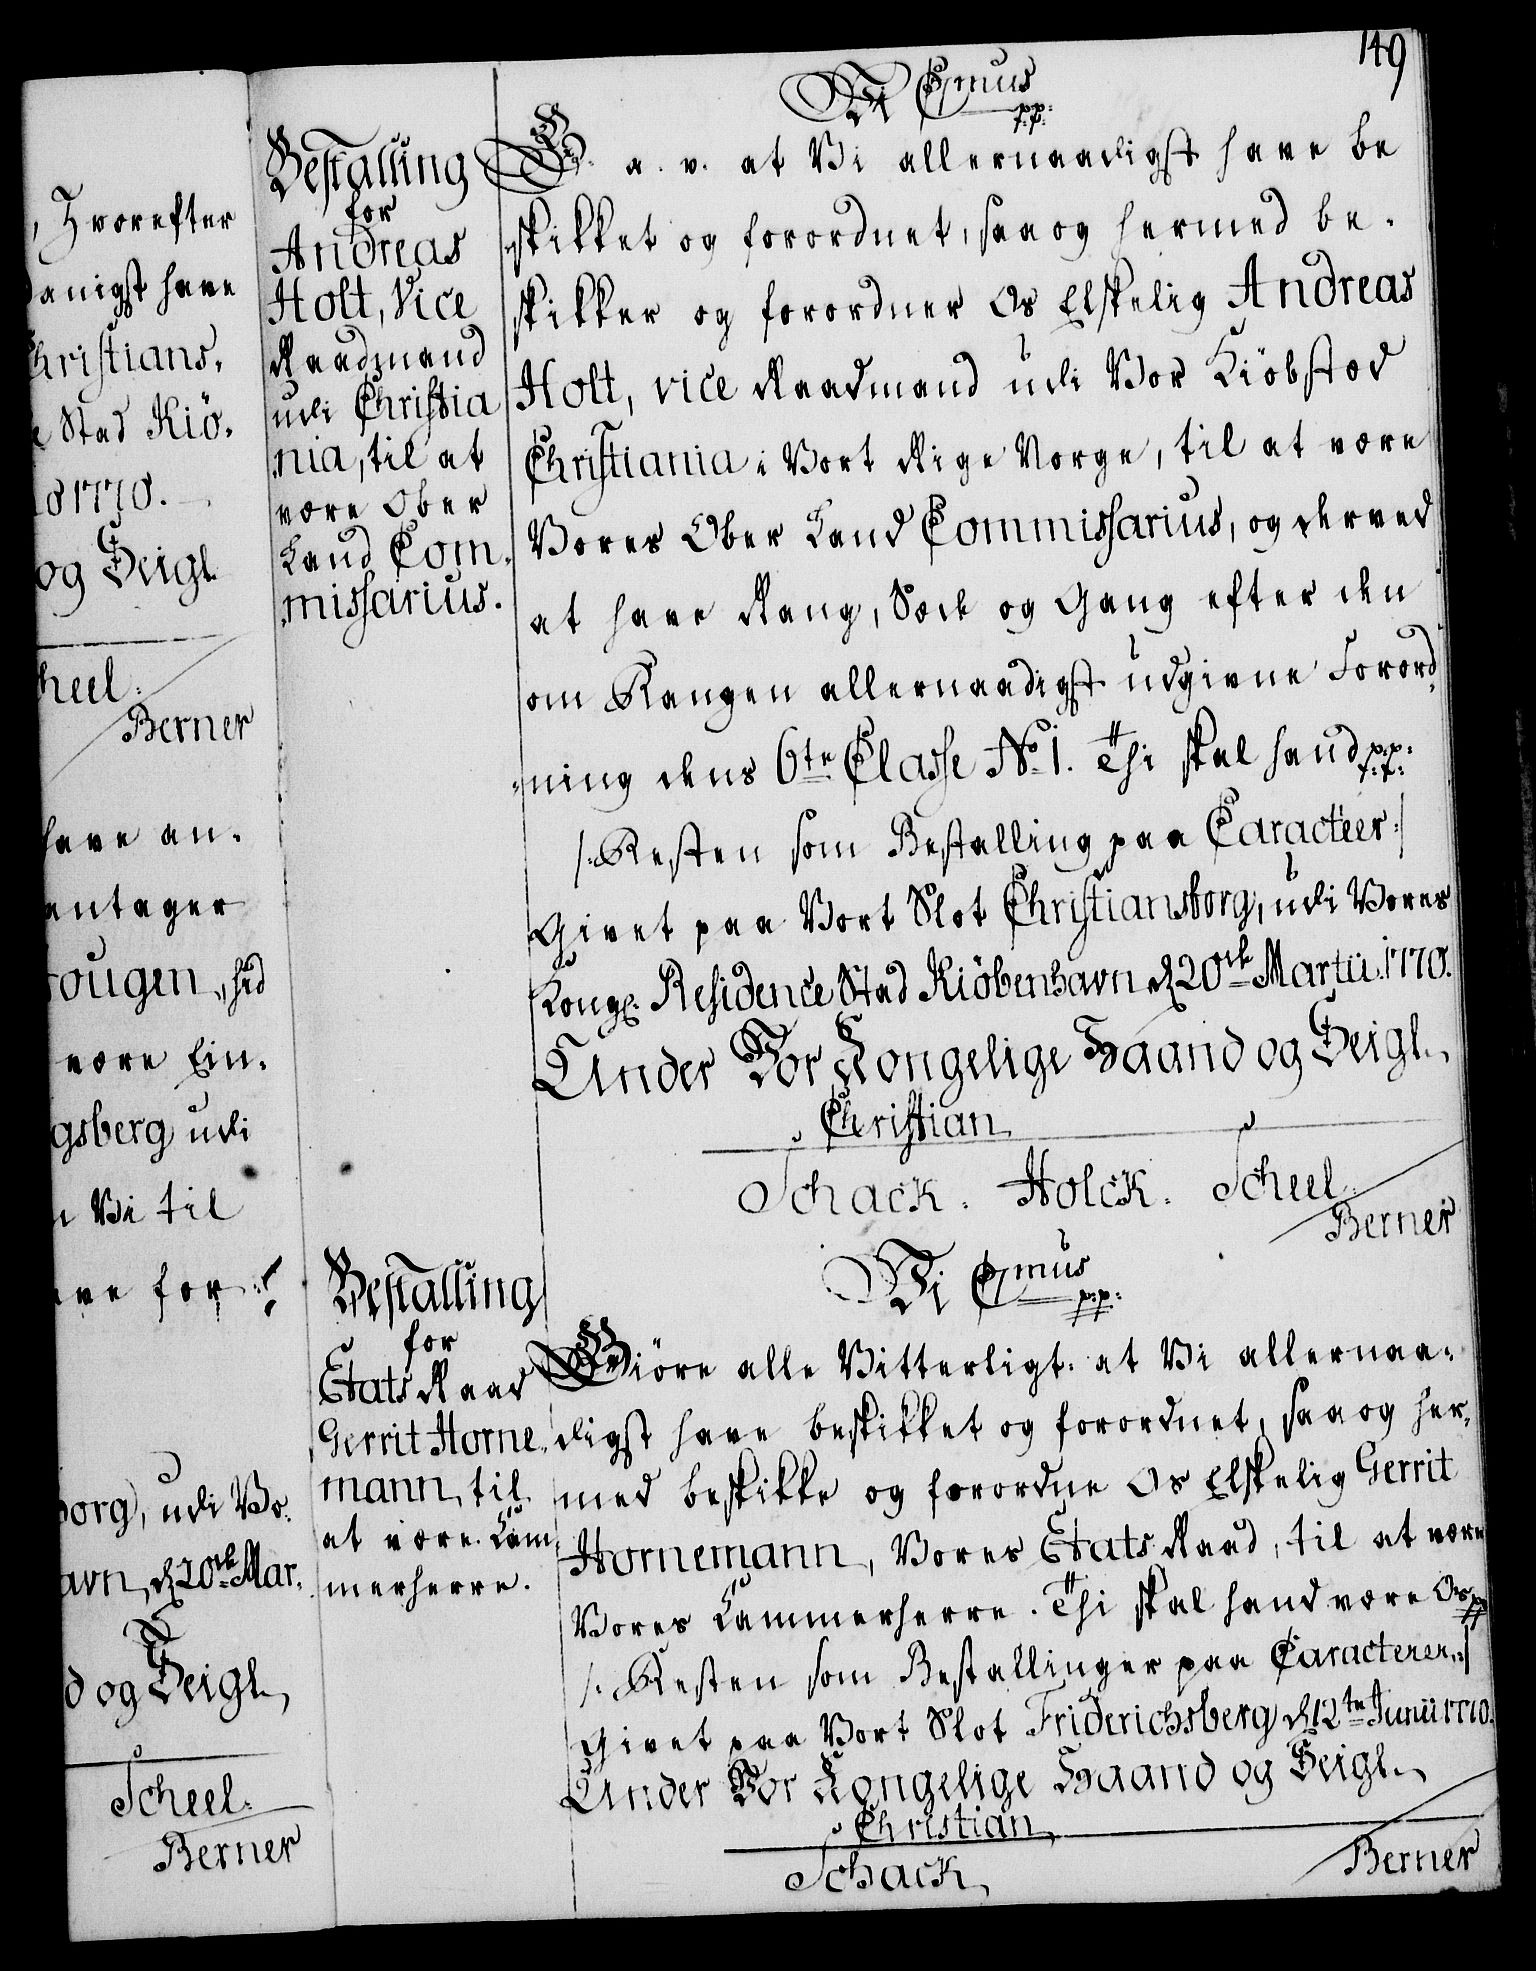 149
, Hvorefter
danigst have
Christians-
e Stad Kiö-
1770.
og Seigl
Scheel.
Berner
have an-
antager
være Ein-
gsberg udi
Vi til
ve for
borg, udi Vo-
avn, d 20de Mar-
d og Seigl.
Scheel.
Berner
Bestalling
for
Andreas
Holt, Vice
Raadmand
udi Christia
nia, til at
være Ober
Land Com-
missarius.
Vi Cmus
pp:
G. a. v. at Vi allernaadigst have be
skikket og forordnet, saa og hermed be-
skikker og forordner Os Elskelig Andreas
Holt, vice Raadmand udi Vor Kiöbstæd
Christiania i Vort Rige Norge, til at være
Vores Ober Land Commissarius, og derved
at have Rang, Sæde og Gang efter den
om Rangen allernaadigst udgivne Forord-
ning dens 6te Classe No 1. Thi skal hand pp:
/: Resten som Bestalling paa Caracteer :/
Givet paa Vort Slot Christiansborg, udi Vores
Kongl: Residence Stad Kiöbenhavn d 20de Martii 1770.
Under Vor Kongelige Haand og Seigl.
Christian
Schack. Holck. Scheel.
Berner
Bestalling
for
Etats Raad
Gerrit Horne-
mann, til
at være Kam-
merherre.
Vi Cmus
pp:
Giöre alle Vitterligt: at Vi allernaa-
digst have beskikket og forordnet, saa og her-
med beskikke og forordne Os Elskelig Gerrit
Hornemann, Vores Etats Raad, til at være
Vores Kammerherre. Thi skal hand være Os pp
/: Resten som Bestallinger paa Caracterer :/
Givet paa Vort Slot Friderichsberg d 12te Junii 1770.
Under Vor Kongelige Haand og Seigl.
Christian
Schack
Berner